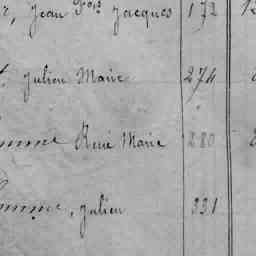 Jean Fois Jacques 172
Julien Marie 274
René Marie 280
, Julien 331